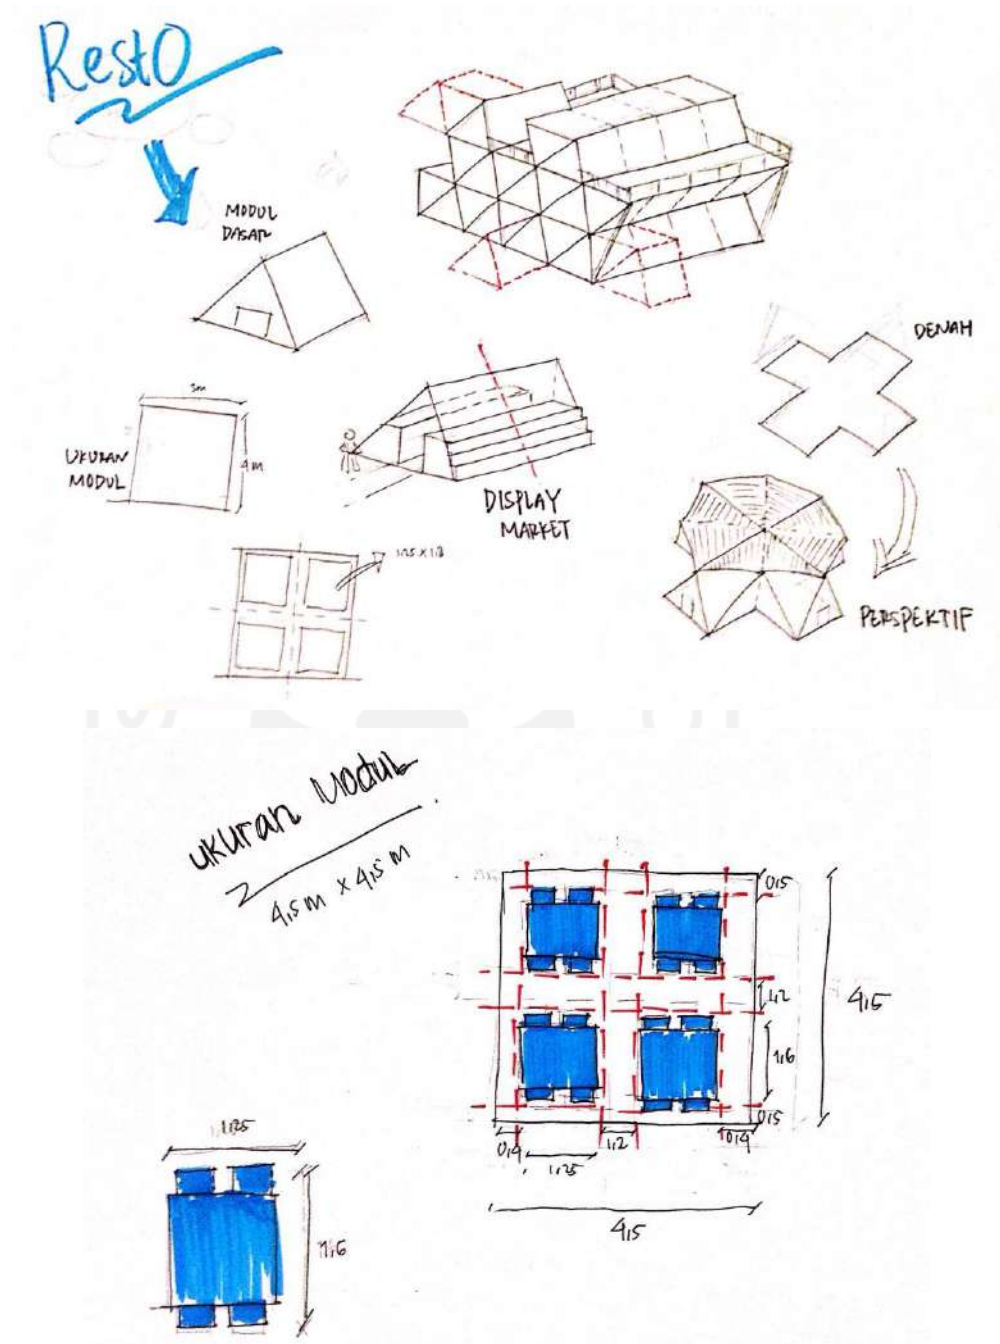 RestO
MODUL
DASAR
DENAH
3m
UKURAN
MODUL
4m
DISPLAY
MARKET
PERSPEKTIF
ukuran Modul
4,5 m x 4,5 m
0,5
1,2
4,5
1,6
0,5
0,4
1,2
0,4
1,25
4,5
1,25
1,6